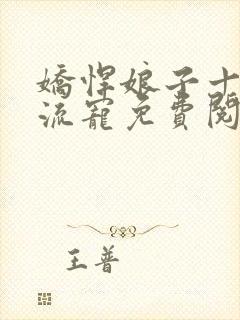 嬌悍娘子十
流寵免費閱
王普